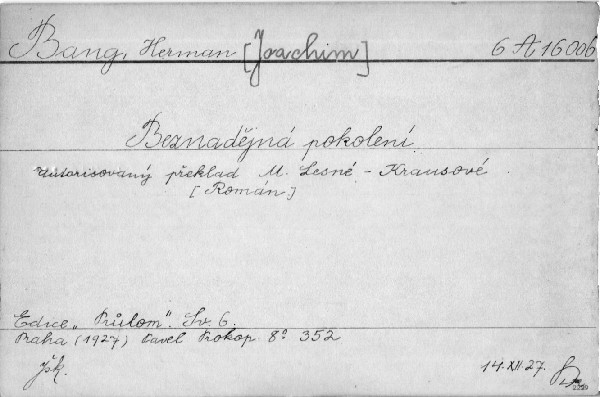 Bang, Herman [Joachim] 6 A 16006
Beznadějná pokolení.
Autorisovaný překlad M. Lesné-Krausové.
[Román]
Edice „Průlom". Sv. 6.
Praha (1927) Pavel Prokop 8° 352
Jsk. 14.XII.27.